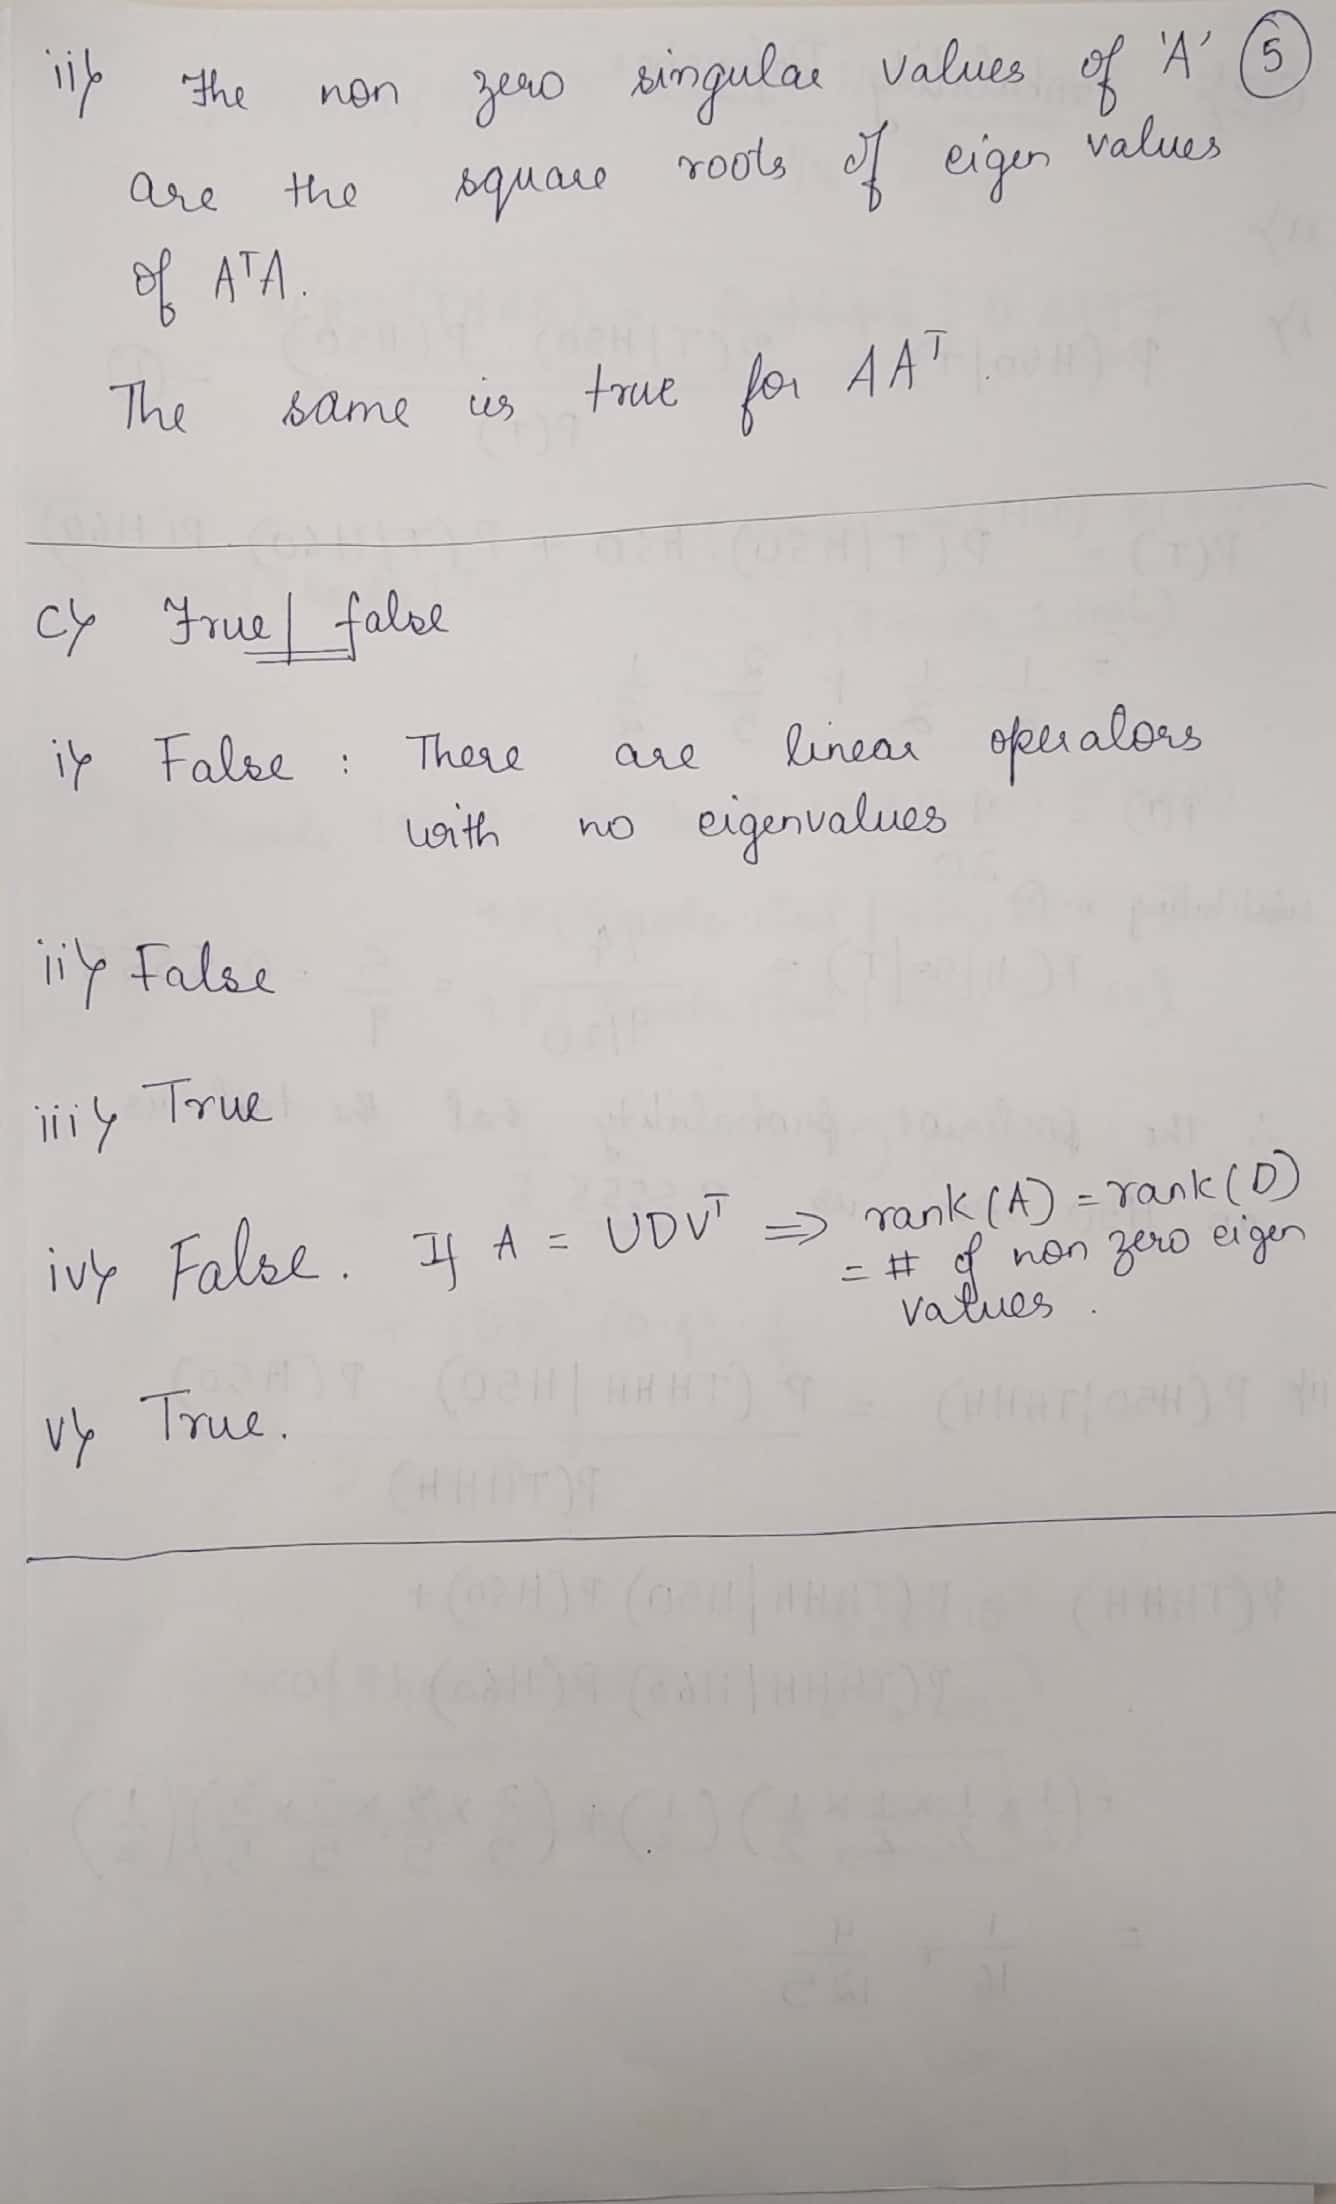 ii) The non zero singular values of 'A' 5
are the square roots of eigen values
of AᵀA.
The same is true for AAᵀ.
C) True | false
i) False : There are linear operators
with no eigenvalues
ii) False
iii) True
iv) False. If A = UDVᵀ ⇒ rank(A) = rank(D)
= # of non zero eigen
values.
v) True.